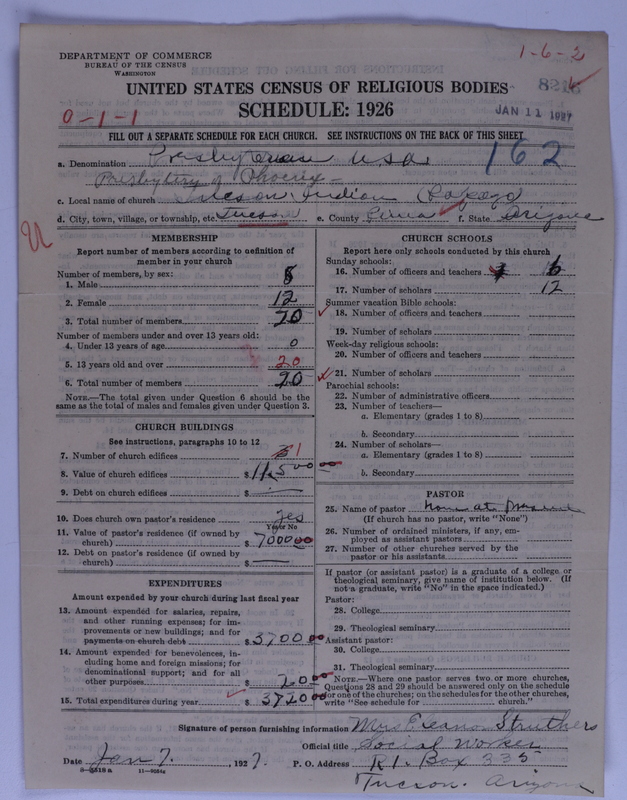 DEPARTMENT OF COMMERCE
BUREAU OF THE CENSUS
WASHINGTON
1-6-2
UNITED STATES CENSUS OF RELIGIOUS BODIES
SCHEDULE: 1926
0-1-1
JAN 11 1927
FILL OUT A SEPARATE SCHEDULE FOR EACH CHURCH. SEE INSTRUCTIONS ON THE BACK OF THIS SHEET
a. Denomination Presbyterian USA 162
Presbytery of Phoenix
c. Local name of church Tucson Indian (Papago)
d. City, town, village, or township, etc. Tucson e. County Pima f. State Arizona
MEMBERSHIP
Report number of members according to definition of
member in your church
Number of members, by sex:
1. Male 8
2. Female 12
3. Total number of members 20
Number of members under and over 13 years old:
4. Under 13 years of age 0
5. 13 years old and over 20
6. Total number of members 20
NOTE.—The total given under Question 6 should be the
same as the total of males and females given under Question 3.
CHURCH BUILDINGS
See instructions, paragraphs 10 to 12
7. Number of church edifices 1
8. Value of church edifices $
9. Debt on church edifices $ —
10. Does church own pastor's residence yes
Yes or No
11. Value of pastor's residence (if owned by
church) $ 7000 00
12. Debt on pastor's residence (if owned by
church) $ —
EXPENDITURES
Amount expended by your church during last fiscal year
13. Amount expended for salaries, repairs,
and other running expenses; for im-
provements or new buildings; and for
payments on church debt $ 3700 00
14. Amount expended for benevolences, in-
cluding home and foreign missions; for
denominational support; and for all
other purposes $ 20 00
15. Total expenditures during year $ 3720 00
CHURCH SCHOOLS
Report here only schools conducted by this church
Sunday schools:
16. Number of officers and teachers 6
17. Number of scholars 12
Summer vacation Bible schools:
18. Number of officers and teachers
19. Number of scholars
Week-day religious schools:
20. Number of officers and teachers
21. Number of scholars
Parochial schools:
22. Number of administrative officers
23. Number of teachers—
a. Elementary (grades 1 to 8)
b. Secondary
24. Number of scholars—
a. Elementary (grades 1 to 8)
b. Secondary
PASTOR
25. Name of pastor None at present
(If church has no pastor, write "None")
26. Number of ordained ministers, if any, em-
ployed as assistant pastors
27. Number of other churches served by the
pastor or his assistants
If pastor (or assistant pastor) is a graduate of a college or
theological seminary, give name of institution below. (If
not a graduate, write "No" in the space indicated.)
Pastor:
28. College
29. Theological seminary
Assistant pastor:
30. College
31. Theological seminary
NOTE.—Where one pastor serves two or more churches,
Questions 28 and 29 should be answered only on the schedule
for one of the churches; on the schedules for the other churches,
write "See schedule for church."
Signature of person furnishing information Mrs Struthers
Official title Social Worker
Date Jan 7, 1927. P. O. Address R1. Box 335
Tucson. Arizona